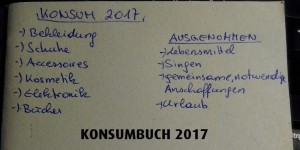 KONSUM 2017.
-) Bekleidung
-) Schuhe
-) Accessoires
-) Kosmetik
-) Elektronik
-) Bücher
AUSGENOMMEN
-) Lebensmittel
-) Singen
-) gemeinsame, notwendige
Anschaffungen
-) Urlaub
KONSUMBUCH 2017